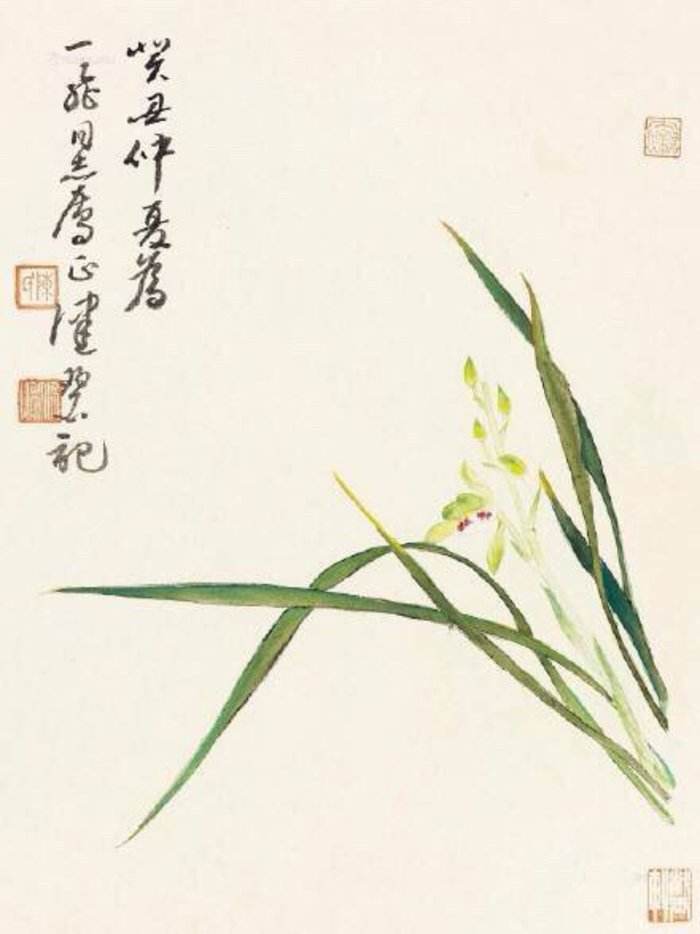 癸丑仲夏為
一飛同志属正健碧記